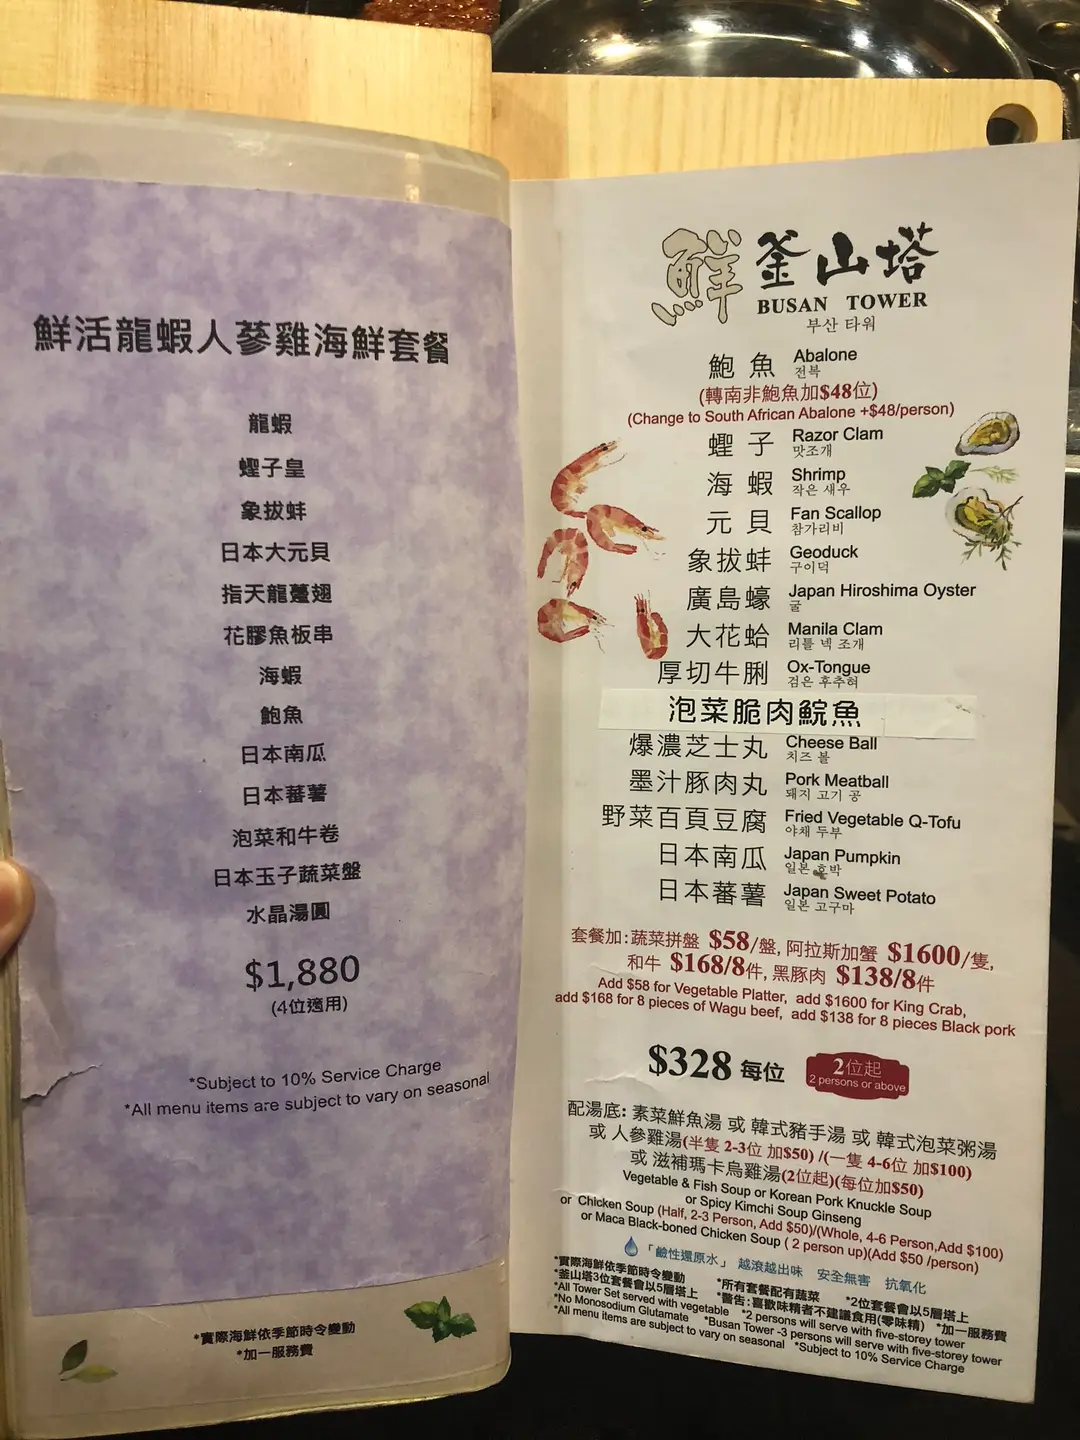 鮮活龍蝦人蔘雞海鮮套餐
龍蝦
蟶子皇
象拔蚌
日本大元貝
指天龍躉翅
花膠魚板串
海蝦
鮑魚
日本南瓜
日本蕃薯
泡菜和牛卷
日本玉子蔬菜盤
水晶湯圓
$1,880
(4位適用)
*Subject to 10% Service Charge
*All menu items are subject to vary on seasonal
*實際海鮮依季節時令變動
*加一服務費
鮮 釜山塔
BUSAN TOWER
부산 타워
鮑魚 Abalone
전복
(轉南非鮑魚加$48位)
(Change to South African Abalone +$48/person)
蟶子 Razor Clam
맛조개
海蝦 Shrimp
작은 새우
元貝 Fan Scallop
참가리비
象拔蚌 Geoduck
구이덕
廣島蠔 Japan Hiroshima Oyster
굴
大花蛤 Manila Clam
리틀 넥 조개
厚切牛脷 Ox-Tongue
검은 후추혀
泡菜脆肉鯇魚
爆濃芝士丸 Cheese Ball
치즈 볼
墨汁豚肉丸 Pork Meatball
돼지 고기 공
野菜百頁豆腐 Fried Vegetable Q-Tofu
야채 두부
日本南瓜 Japan Pumpkin
일본 호박
日本蕃薯 Japan Sweet Potato
일본 고구마
套餐加:蔬菜拼盤 $58/盤, 阿拉斯加蟹 $1600/隻,
和牛 $168/8件, 黑豚肉 $138/8件
Add $58 for Vegetable Platter, add $1600 for King Crab,
add $168 for 8 pieces of Wagu beef, add $138 for 8 pieces Black pork
$328 每位
2位起
2 persons or above
配湯底: 素菜鮮魚湯 或 韓式豬手湯 或 韓式泡菜粥湯
或 人參雞湯(半隻 2-3位 加$50) /(一隻 4-6位 加$100)
或 滋補瑪卡烏雞湯(2位起)(每位加$50)
Vegetable & Fish Soup or Korean Pork Knuckle Soup
or Spicy Kimchi Soup Ginseng
or Chicken Soup (Half, 2-3 Person, Add $50)/(Whole, 4-6 Person,Add $100)
or Maca Black-boned Chicken Soup ( 2 person up)(Add $50 /person)
「鹼性還原水」 越滾越出味 安全無害 抗氧化
*實際海鮮依季節時令變動 *所有套餐配有蔬菜 *2位套餐會以5層塔上
*釜山塔3位套餐會以5層塔上 *警告:喜歡味精者不建議食用(零味精) *加一服務費
*All Tower Set served with vegetable *2 persons will serve with five-storey tower
*No Monosodium Glutamate *Busan Tower -3 persons will serve with five-storey tower
*All menu items are subject to vary on seasonal *Subject to 10% Service Charge